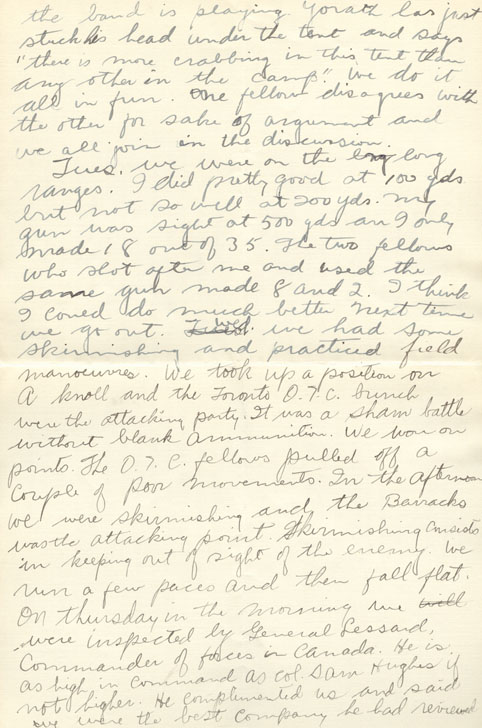 the band is playing Yorath has just
stuck his head under the tent and says
"there is more crabbing in this tent than
any other in the camp". We do it
all in fun. One fellow disagrees with
the other for sake of argument and
we all join in the discussion.
Tues. we were on the long long
ranges. I did pretty good at 100 yds
but not so well at 200 yds. My
gun was sight at 500 yds an I only
made 18 out of 35. The two fellows
who shot after me and used the
same gun made 8 and 2. I think
I coued do much better next time
we go out. Wed. we had some
skirmishing and practiced field
manoeuvres. We took up a position on
a knoll and the Toronto O.T.C. bunch
were the attacking party. It was a sham battle
without blank ammunition. We won on
points. The O.T.C. fellows pulled off a
couple of poor movements. In the afternoon
we were skirmishing and the Barracks
was the attacking point. Skirmishing consists
in keeping out of sight of the enemy. We
run a few paces and then fall flat.
On Thursday in the morning we will
were inspected by General Lessard,
Commander of forces in Canada. He is
as high in command as Col. Sam Hughes if
not higher. He complemented us and said
we were the best company he had reviewed